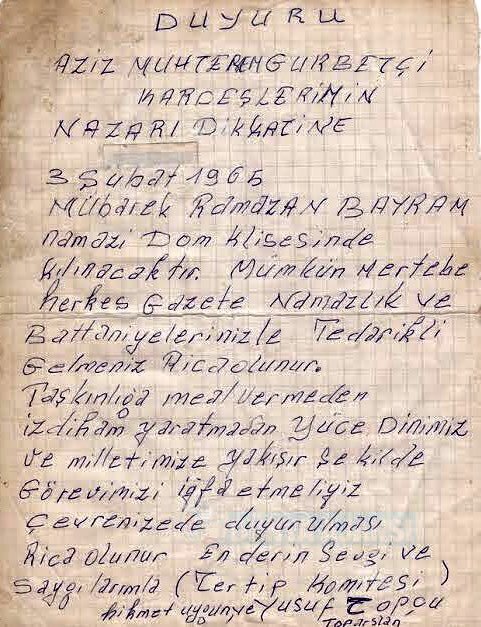 DUYURU
AZİZ MUHTEREM GURBETÇİ
KARDEŞLERİMİN
NAZARI DİKKATİNE
3 Şubat 1965
Mübarek RamazAN BAYRAM
namazi Dom Klisesinde
kılınacaktır. Mümkün Mertebe
herkes Gazete Namazlık ve
Battaniyelerinizle Tedarikli
Gelmeniz Ricaolunur.
Taşkınlığa meal vermeden
izdiham yaratmadan Yüce Dinimiz
ve milletimize yakışır şekilde
Görevimizi ifa etmeliyiz
Çevrenizede duyurulması
Rica olunur En derin Sevgi ve
Saygılarımla (Tertip Komitesi)
hikmet uygun ve Yusuf Topçu
Toparslan